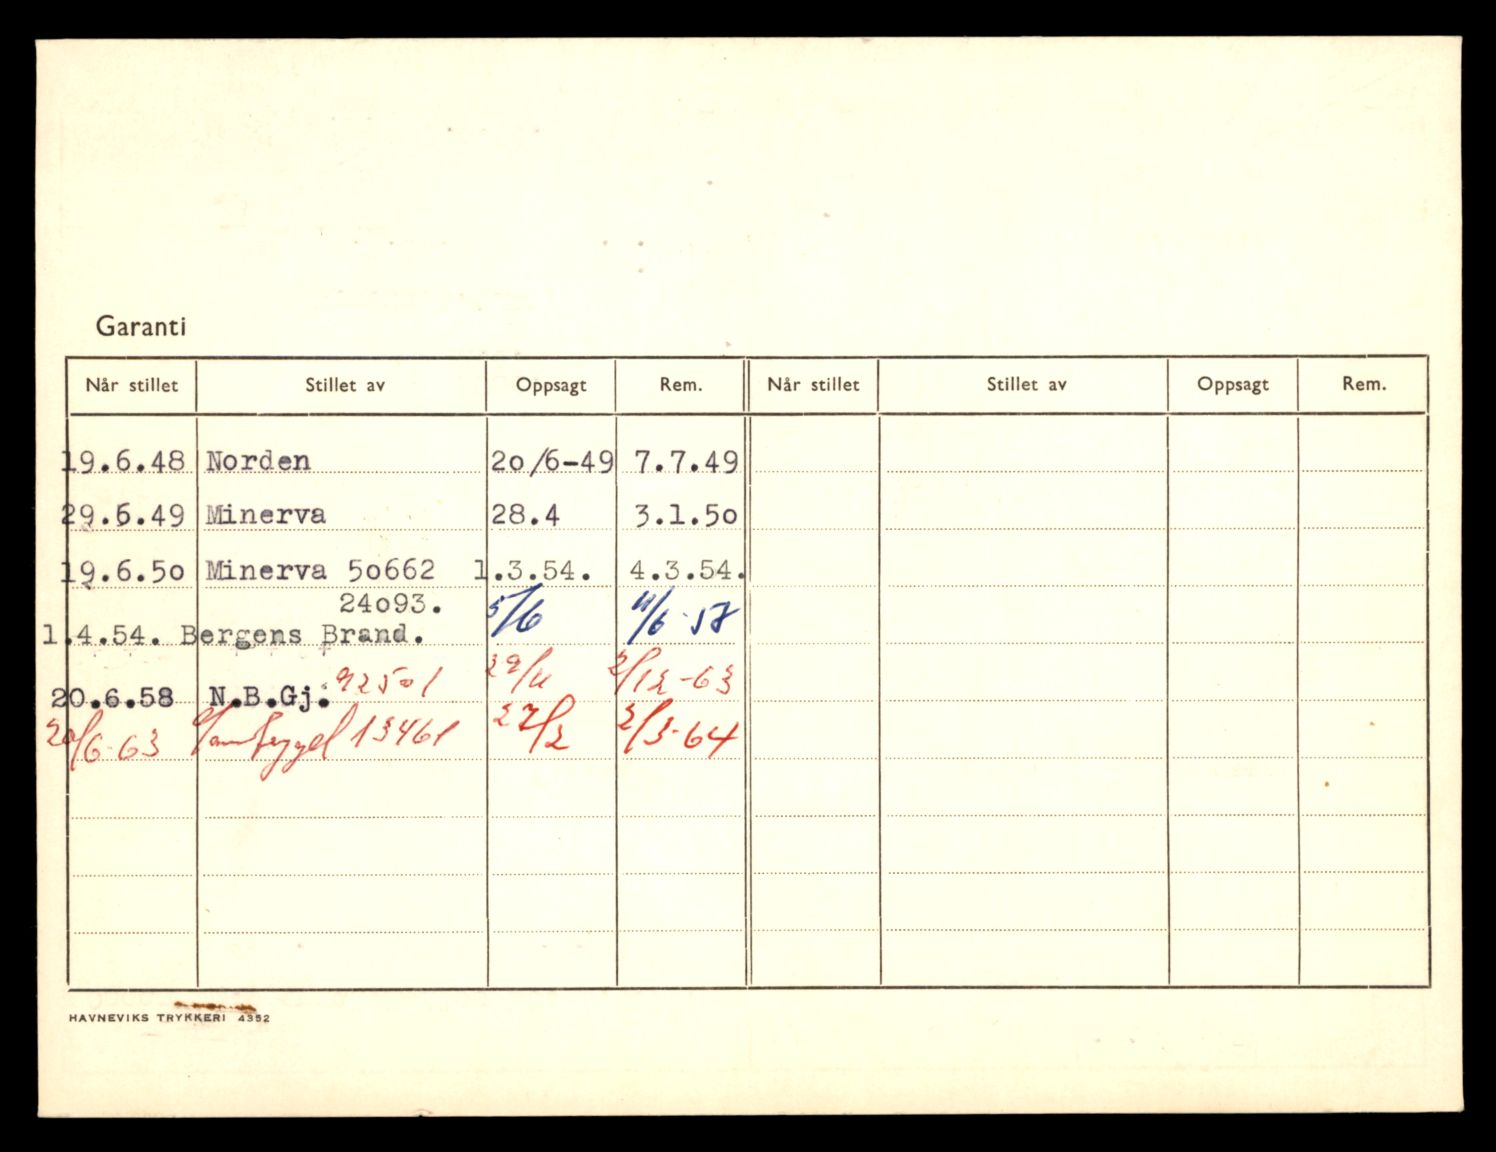 Garanti
Når stillet Stillet av Oppsagt Rem. Når stillet Stillet av Oppsagt Rem.
19.6.48 Norden 20/6-49 7.7.49
29.6.49 Minerva 28.4 3.1.50
19.6.50 Minerva 50662 1.3.54. 4.3.54.
24093. 5/6 11/6-58
1.4.54. Bergens Brand.
20.6.58 N.B.Gj. 92501 29/11 2/12-63
20/6-63 13461 27/2 2/3-64
HAVNEVIKS TRYKKERI 4352